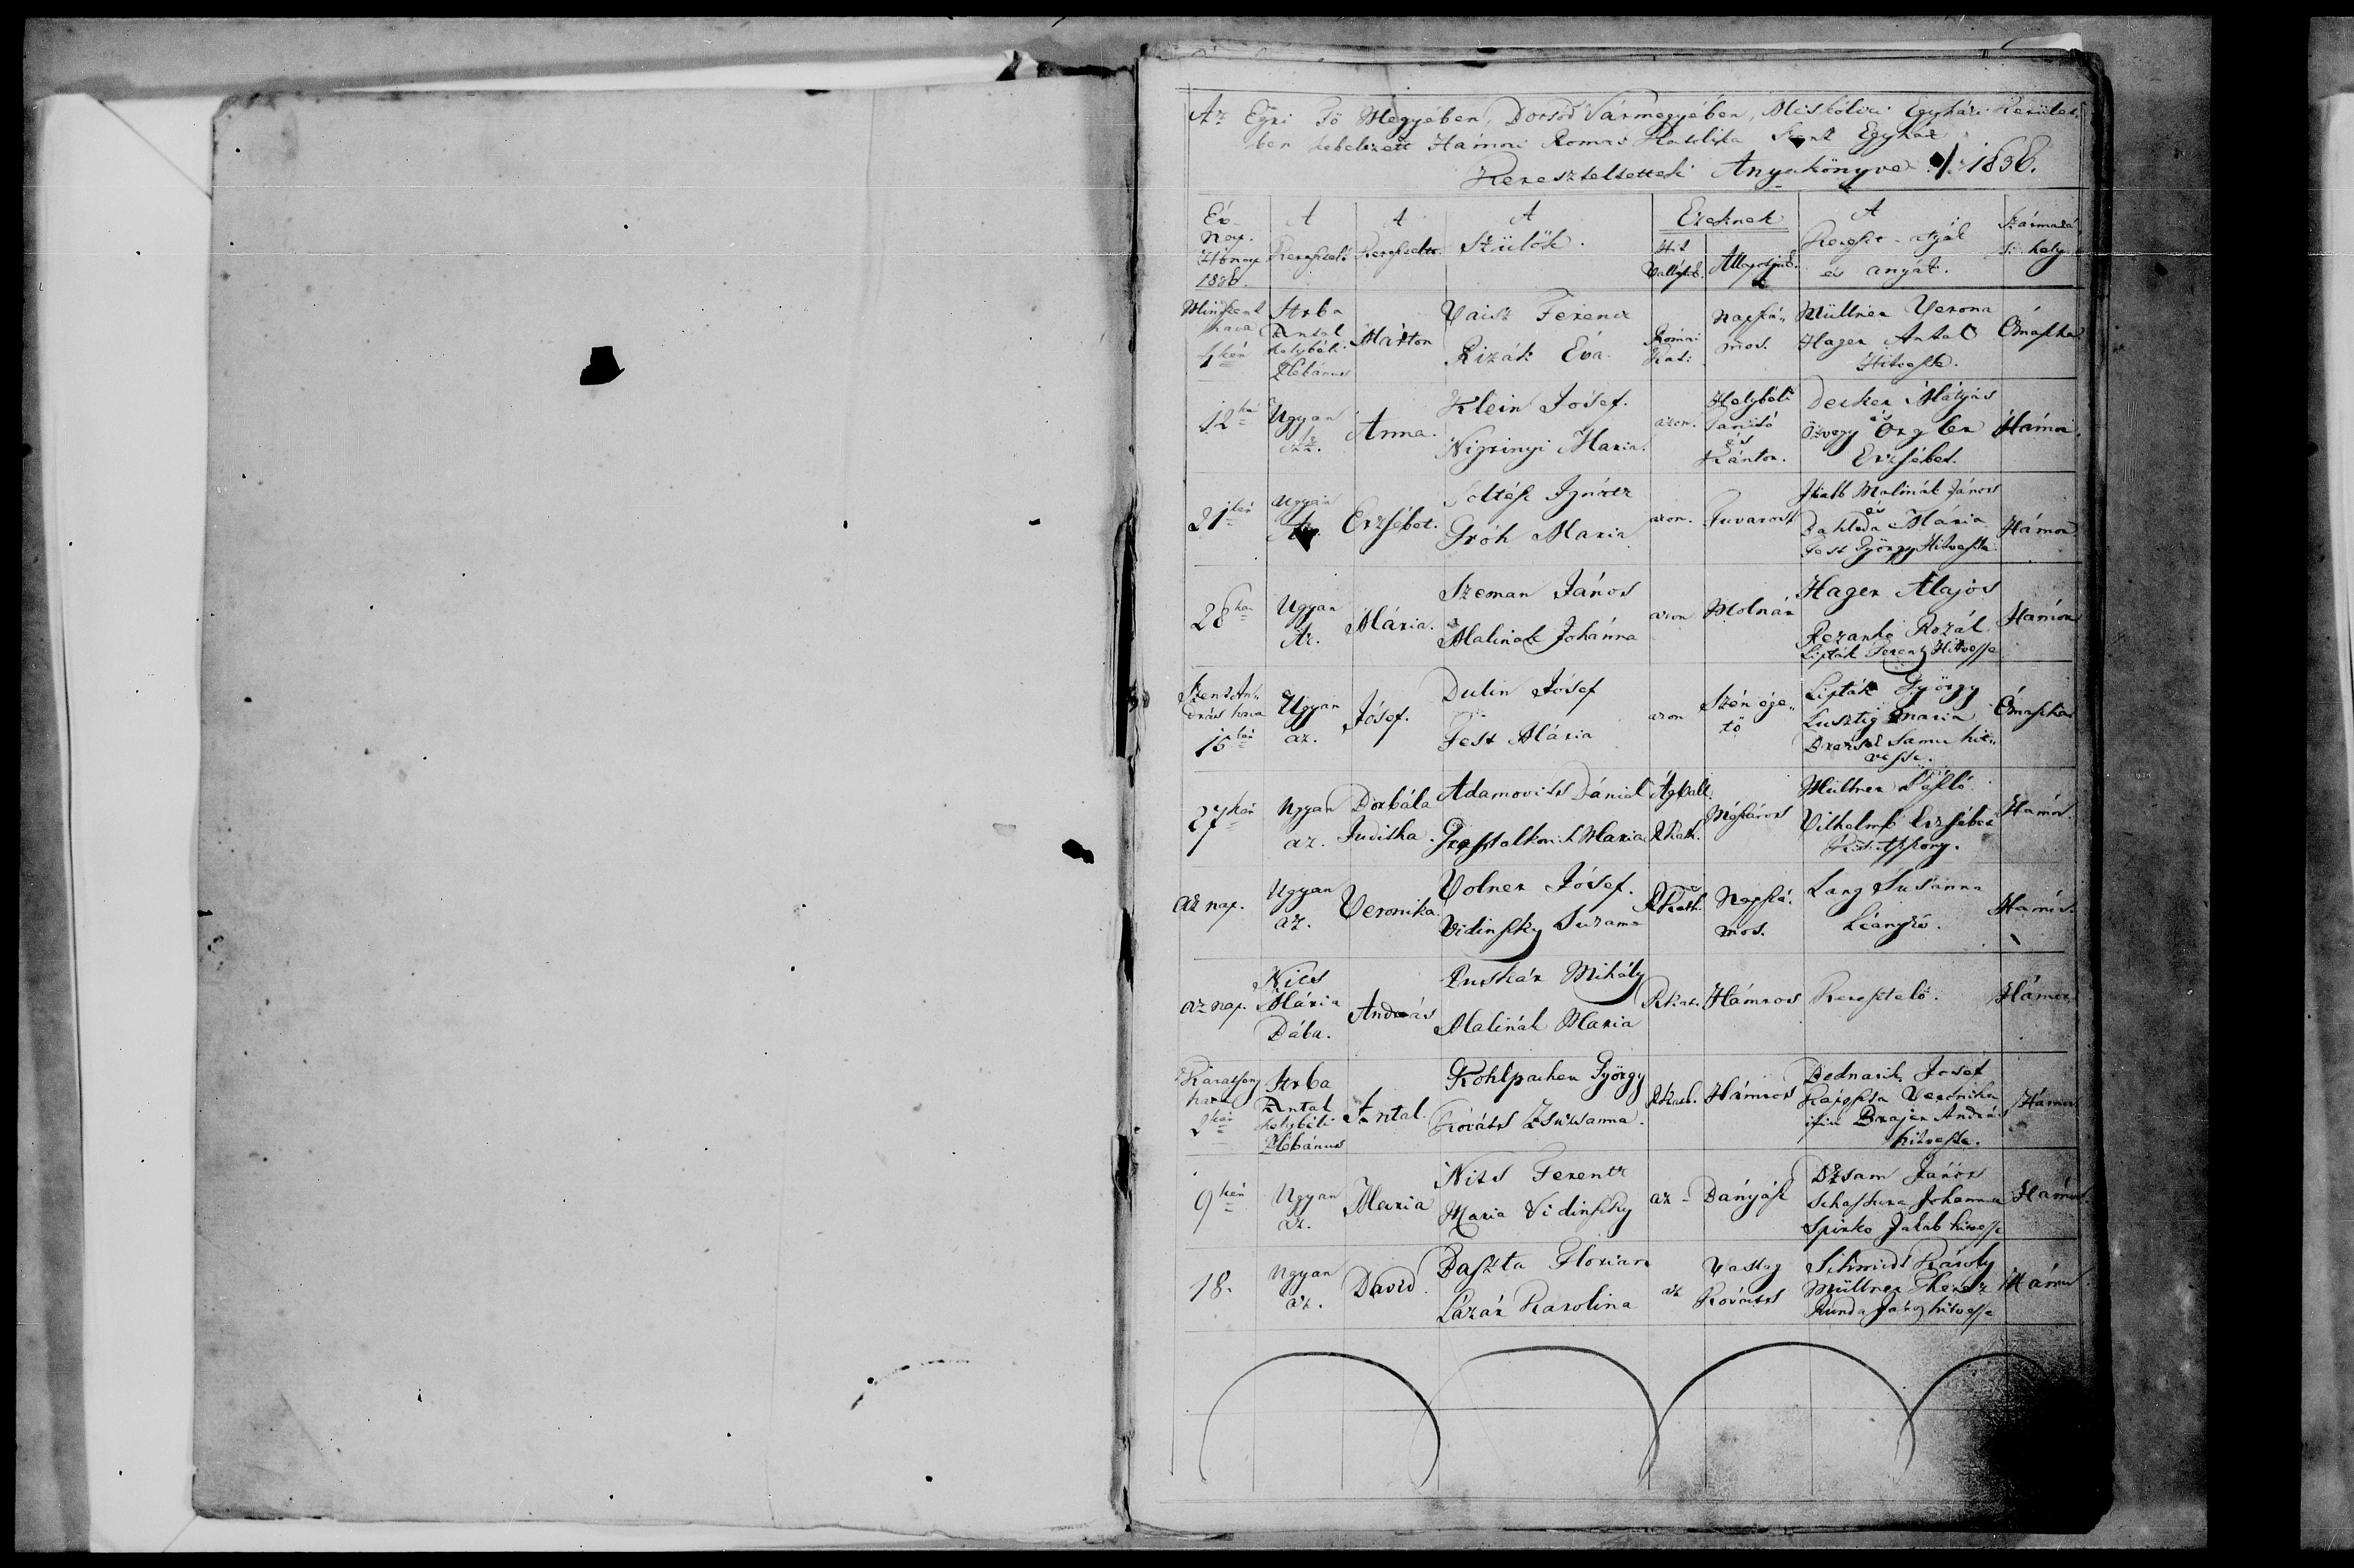 Az Egri Fő Megyében, Borsod Vármegyében, Miskólczi Egyházi Kerület,,
ben kebelezett Hámori Romai Katolika Szent Egyház
Kereszteltettek Anyakönyve 1836.
Év
Nap.
Hónap
1836.
A
Keresztelő
A
Keresztelt
A
Szülők.
Ezeknek
Hit
Vallások.
Állapotjok.
A
Kereszt-atyák
és anyák.
Származá
si hely
Mindszent
hava
Strba
Antal
helybéli
Plebánus
Márton
Vaisz Ferencz
Rizák Éva.
Római
Kat:
Napszá,,
mos.
Müllner Verona
Hager Antal
Hitvesse.
Ómassa
12 kén
Ugyan
az.
Anna.
Klein Jósef.
Nigrinyi Maria.
azon.
Helybéli
Tanító
és
Kántor.
Decker Mátyás
és
özvegy Orgler
Erzsébet.
Hámor.
21 kén
Ugyan
Az.
Erzsébet.
Ignátz
Gróh Maria
azon.
Fuvaros
Ifiabb Malinák János
és
Mária
Fest György Hitvesse
Hámor
28 kán
Ugyan
Az.
Mária.
Szeman János
Malinak Johánna
azon
Molnár
Hager Alajos
Rezanko Rozál
Lipták Ferentz Hitvesse
Hamór
Szent An,,
drás hava
Ugyan
az.
Jósef.
Dulin Jósef
Fest Mária
azon
Szén ége,,
tő
Lipták György
Lusztig Maria
Samu hit,,
vesse.
Ómassa
27 kén
Ugyan
az.
Borbála
Juditka.
Adamovits Dániel
Maria
Ág Vall.
R Kath.
Mészáros
Müllner László
Vilhelm Erzsébet
Hámor.
az nap.
Ugyan
az.
Veronika.
Volner Jósef.
Vidinszky Susanna
R Kath.
Napszá,
mos.
Lang Susanna
Leányzó.
Hamór.
az nap.
Nics
Mária
Bába.
András
Puskár Mihály
Malinák Maria
R kat.
Hámros
Keresztelő.
Hámor
Karátsony
hava
2 kán
Strba
Antal
helybéli
Plébánus
Antal.
Kohlpacher György
Kováts Zsuzsanna.
R Kath.
Hámros
Bednarik Josef
Veronika
ifiu Brajer András
hitvesse.
Hámor
9 kén
Ugyan
az.
Maria
Nits Ferentz
Maria Vidinszky
az -
Bányász
Dzsam János
Johanna
Spirko Jakab hitvesse
Hámor.
18.
Ugyan
az.
David.
Baszta Florian
Lázár Karolina
az
Vastag
Kováts
Schmidt Károly
Müllner Therez
Kunda hitvesse
Hámor.